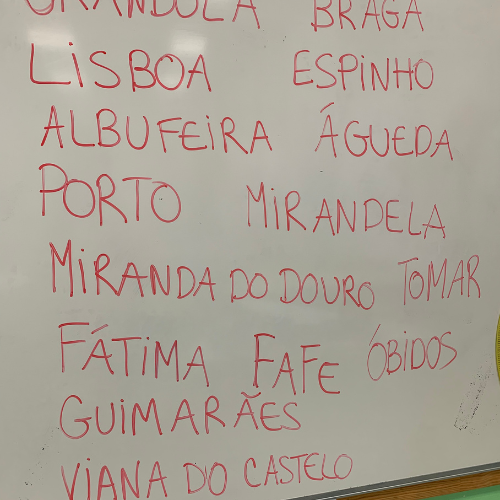 GRÂNDOLA BRAGA
LISBOA ESPINHO
ALBUFEIRA ÁGUEDA
PORTO MIRANDELA
MIRANDA DO DOURO TOMAR
FÁTIMA FAFE ÓBIDOS
GUIMARÃES
VIANA DO CASTELO